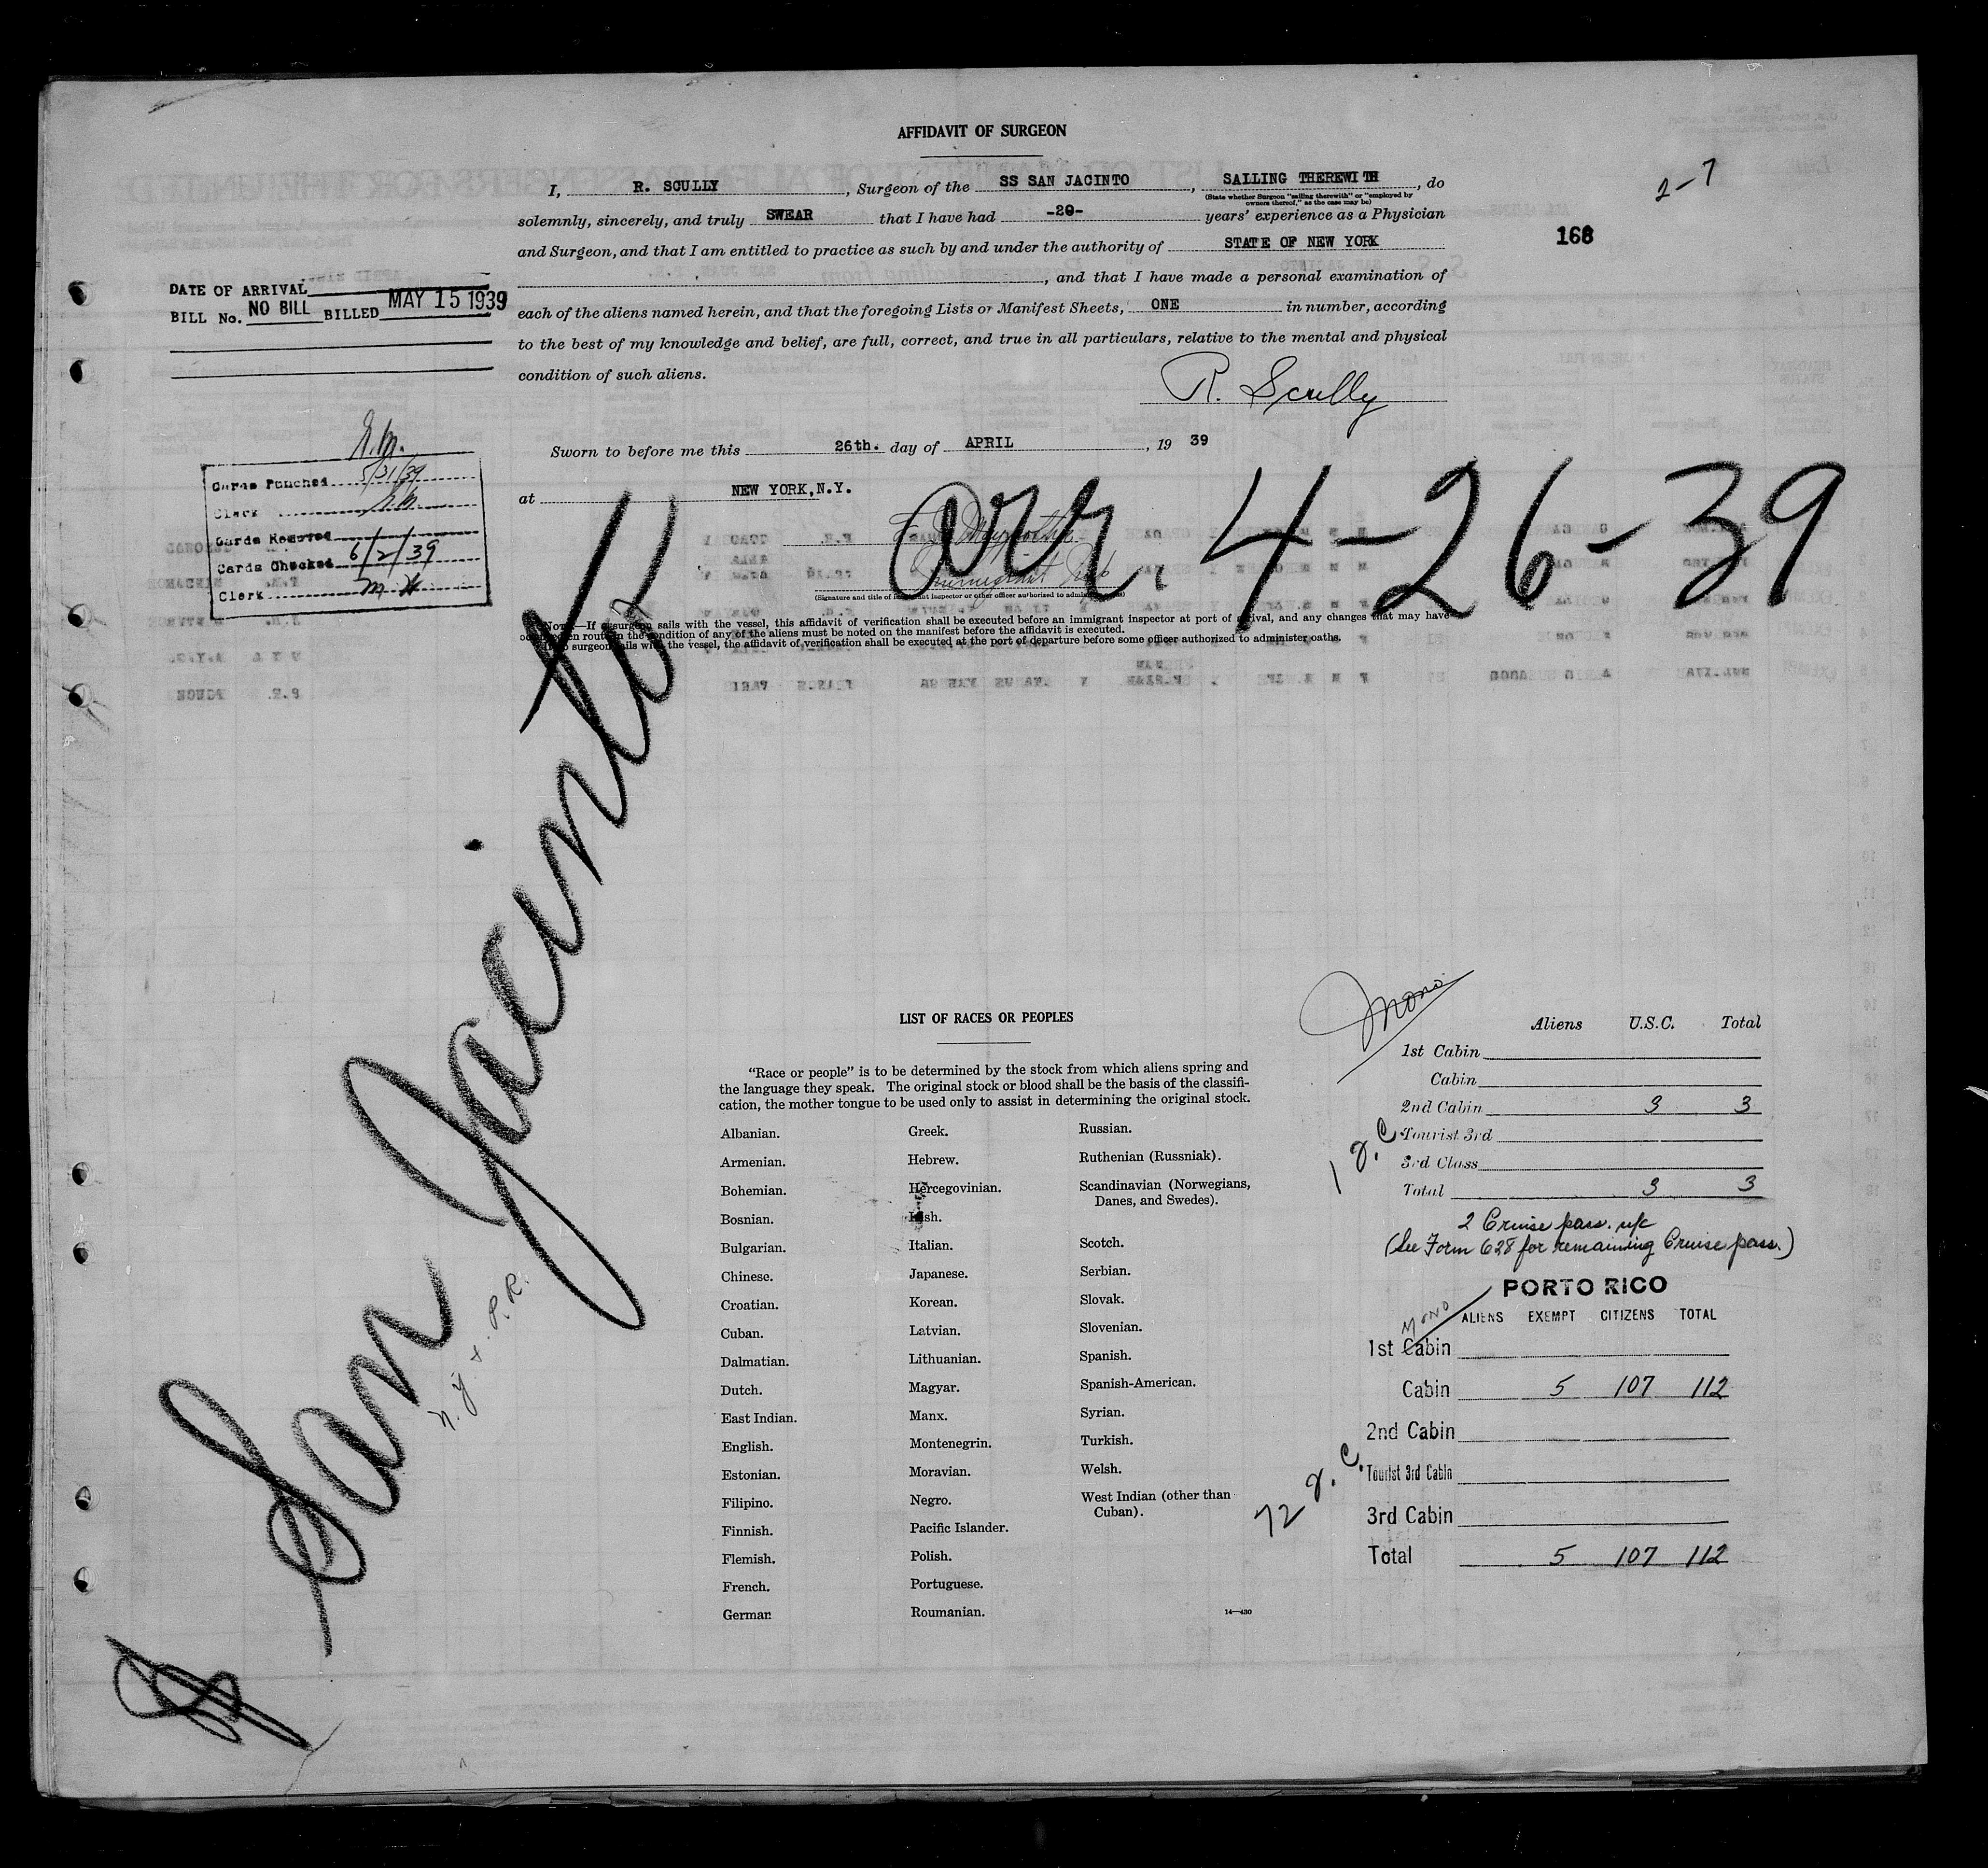 AFFIDAVIT OF SURGEON
I, R. SCULLY, Surgeon of the SS SAN JACINTO, SAILING THEREWITH, do
(State whether Surgeon "sailing therewith" or "employed by owners thereof," as the case may be)
solemnly, sincerely, and truly SWEAR that I have had -20- years' experience as a Physician
and Surgeon, and that I am entitled to practice as such by and under the authority of STATE OF NEW YORK
, and that I have made a personal examination of
each of the aliens named herein, and that the foregoing Lists or Manifest Sheets, ONE in number, according
to the best of my knowledge and belief, are full, correct, and true in all particulars, relative to the mental and physical
condition of such aliens.
R. Scully
Sworn to before me this 26th. day of APRIL, 19 39
at NEW YORK, N.Y.
Immigrant Insp
(Signature and title of immigrant inspector or other officer authorized to administer oaths)
NOTE.—If a surgeon sails with the vessel, this affidavit of verification shall be executed before an immigrant inspector at port of arrival, and any changes that may have
occurred en route in the condition of any of the aliens must be noted on the manifest before the affidavit is executed.
If no surgeon sails with the vessel, the affidavit of verification shall be executed at the port of departure before some officer authorized to administer oaths.
2-7
168
DATE OF ARRIVAL
BILL No. NO BILL BILLED MAY 15 1939
Cards Punched 5/31/39
Clerk
Cards Removed
Cards Checked 6/2/39
Clerk
arr. 4-26-39
San Jacinto
N.Y. & P.R.
LIST OF RACES OR PEOPLES
"Race or people" is to be determined by the stock from which aliens spring and
the language they speak. The original stock or blood shall be the basis of the classifi-
cation, the mother tongue to be used only to assist in determining the original stock.
Albanian.
Armenian.
Bohemian.
Bosnian.
Bulgarian.
Chinese.
Croatian.
Cuban.
Dalmatian.
Dutch.
East Indian.
English.
Estonian.
Filipino.
Finnish.
Flemish.
French.
German
Greek.
Hebrew.
Hercegovinian.
Irish.
Italian.
Japanese.
Korean.
Latvian.
Lithuanian.
Magyar.
Manx.
Montenegrin.
Moravian.
Negro.
Pacific Islander.
Polish.
Portuguese.
Roumanian.
Russian.
Ruthenian (Russniak).
Scandinavian (Norwegians,
Danes, and Swedes).
Scotch.
Serbian.
Slovak.
Slovenian.
Spanish.
Spanish-American.
Syrian.
Turkish.
Welsh.
West Indian (other than
Cuban).
14—430
Mono
Aliens U.S.C. Total
1st Cabin
Cabin
2nd Cabin 3 3
Tourist 3rd
3rd Class
Total 3 3
2 Cruise pass. n/c
(See Form 628 for remaining Cruise pass.)
PORTO RICO
MONO
ALIENS EXEMPT CITIZENS TOTAL
1st Cabin
Cabin 5 107 112
2nd Cabin
Tourist 3rd Cabin
3rd Cabin
Total 5 107 112